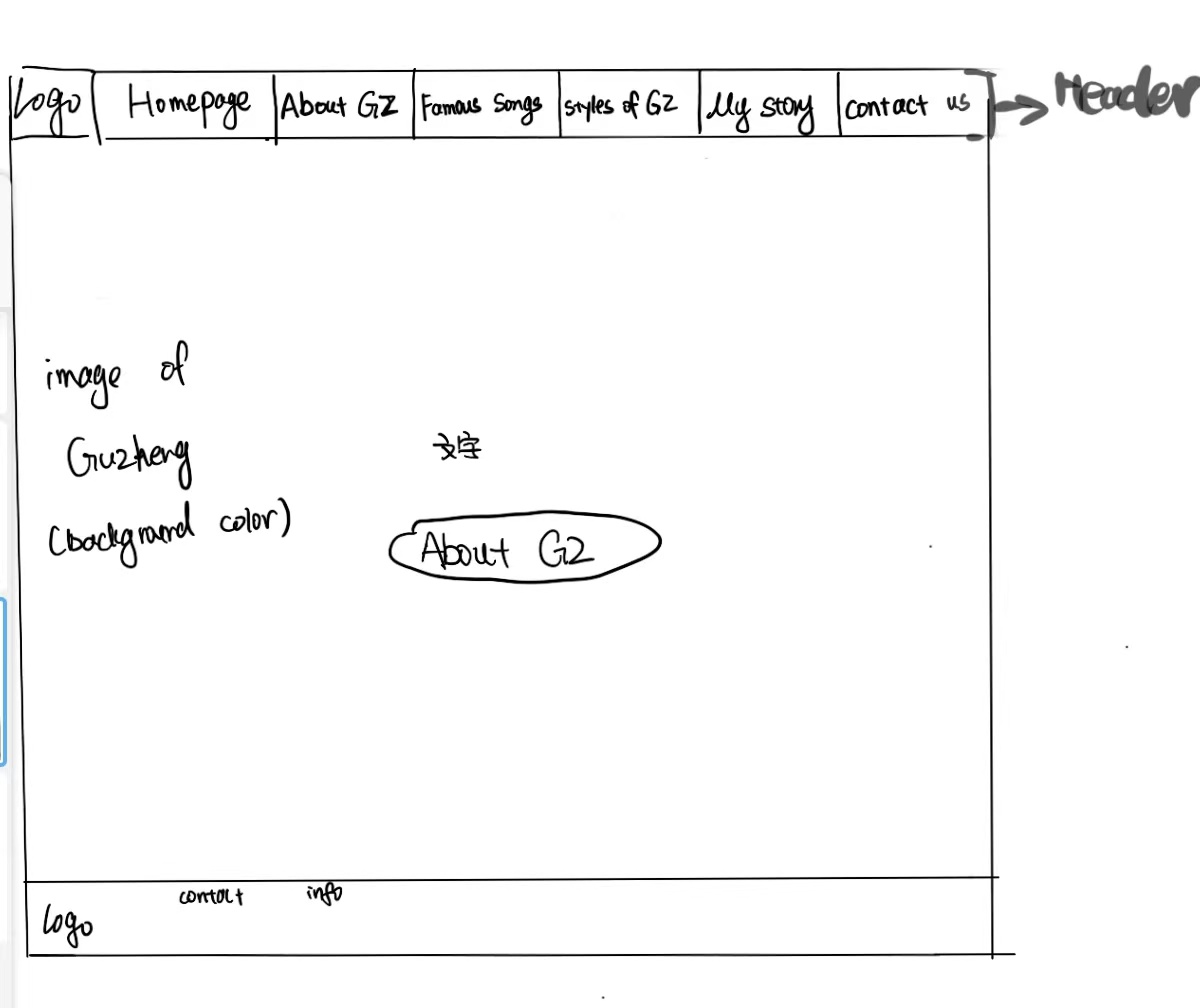 Logo Homepage About GZ Famous Songs Styles of GZ My story contact us → Header
image of
Guzheng
文字
(background color)
About GZ
contact info
logo